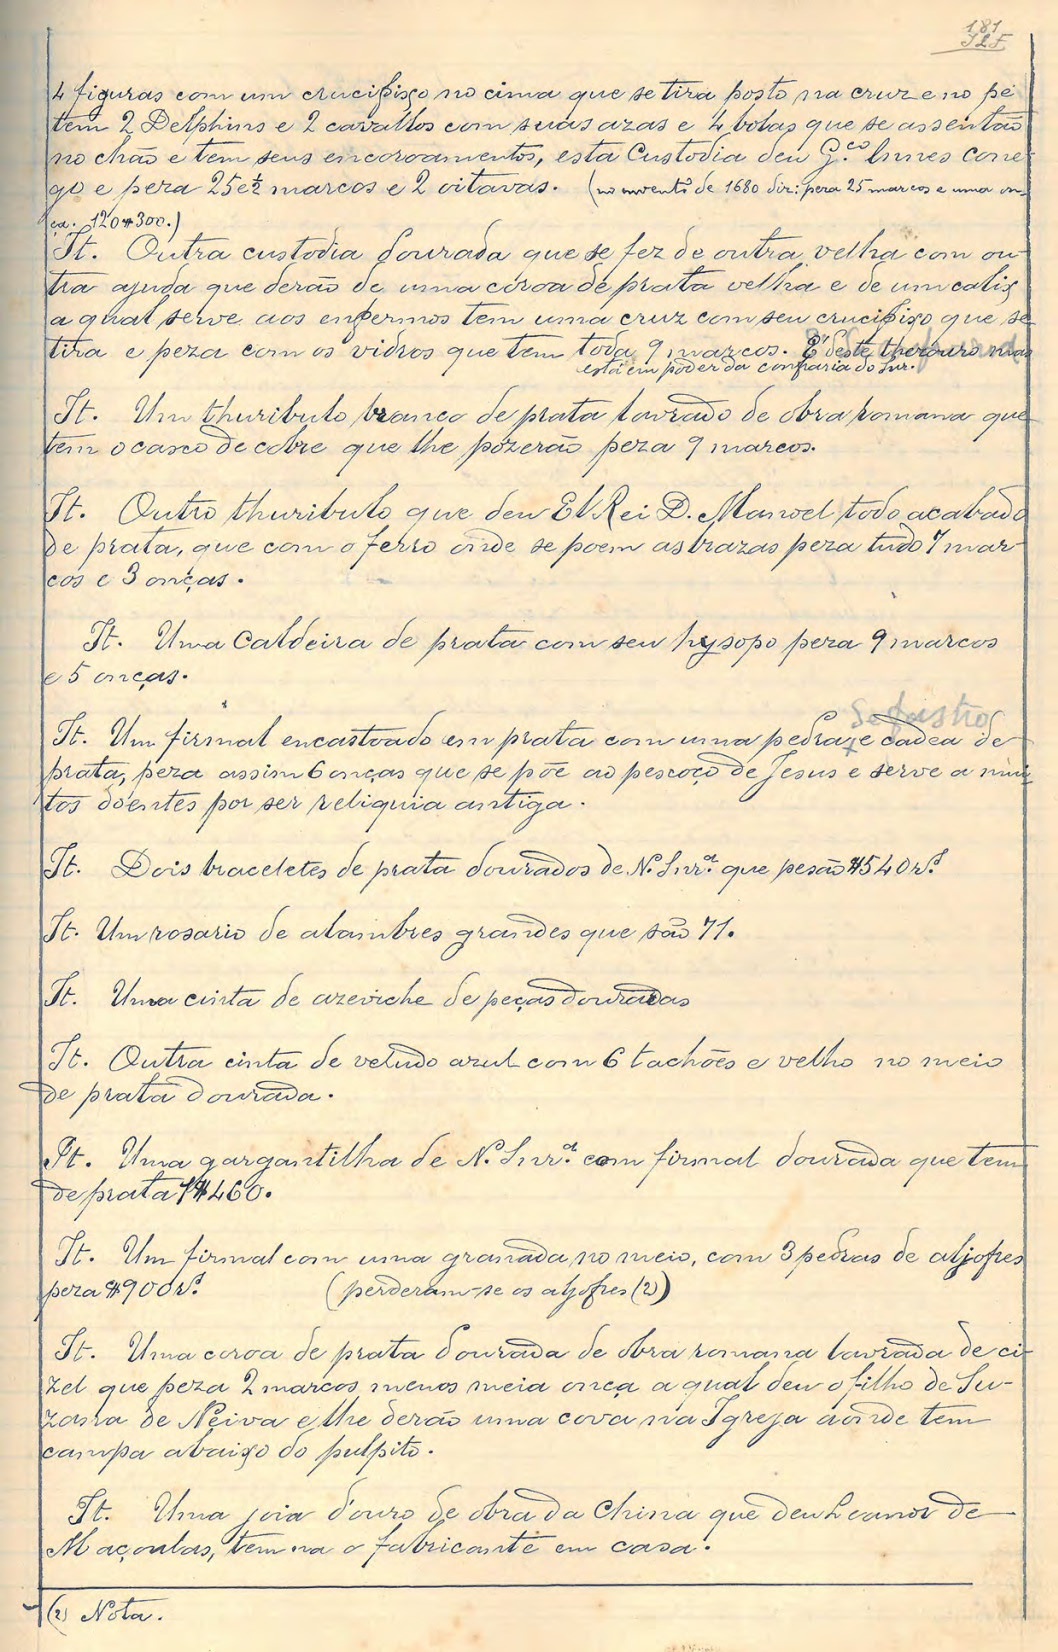 181
4 figuras com um crucifixo no cima que se tira posto na cruz e no pé
tem 2 Delphins e 2 cavallos com suas azas e 4 bolas que se assentão
no chão e tem seus encoroamentos, esta Custodia deu G.co Annes cone-
go e peza 25 e ½ marcos e 2 oitavas. (no invent.o de 1680 diz: peza 25 marcos e uma on-
ça. 120$300.)
It. Outra custodia dourada que se fez de outra velha com ou-
tra ajuda que derão de uma coroa de prata velha e de um calix
a qual serve aos enfermos tem uma cruz com seu crucifixo que se
tira e peza com os vidros que tem toda 9 marcos. É deste thezouro mas
está em poder da confraria do Snr.
It. Um thuribulo branco de prata lavrado de obra romana que
tem o casco de cobre que lhe pozerão peza 9 marcos.
It. Outro thuribulo que deu El Rei D. Manoel todo acabado
de prata, que com o ferro onde se poem as brazas peza tudo 7 mar-
cos e 3 onças.
It. Uma Caldeira de prata com seu hysopo peza 9 marcos
e 5 onças.
It. Um firmal encastoado em prata com uma pedra e cadea de
prata, peza assim 6 onças que se põe ao pescoço de Jesus e serve a mui-
tos doentes por ser reliquia antiga.
It. Dois braceletes de prata dourados de N. Snr.a que pesão $540 r.s
It. Um rosario de alambres grandes que são 71.
It. Uma cinta de azeviche de peças douradas
It. Outra cinta de veludo azul com 6 tachões e velho no meio
de prata dourada.
It. Uma gargantilha de N. Snr.a com firmal dourada que tem
de prata 1$460.
It. Um firmal com uma granada no meio, com 3 pedras de aljofres
peza $900 r.s (perderam-se os aljofres (2))
It. Uma coroa de prata dourada de obra romana lavrada de ci-
zel que peza 2 marcos menos meia onça a qual deu o filho de Su-
zana de Neiva e lhe derão uma cova na Igreja aonde tem
campa abaixo do pulpito.
It. Uma joia d'ouro de obra da China que deu Leanor de
Maçoulas, tem-na o fabricante em casa.
(2) Nota.